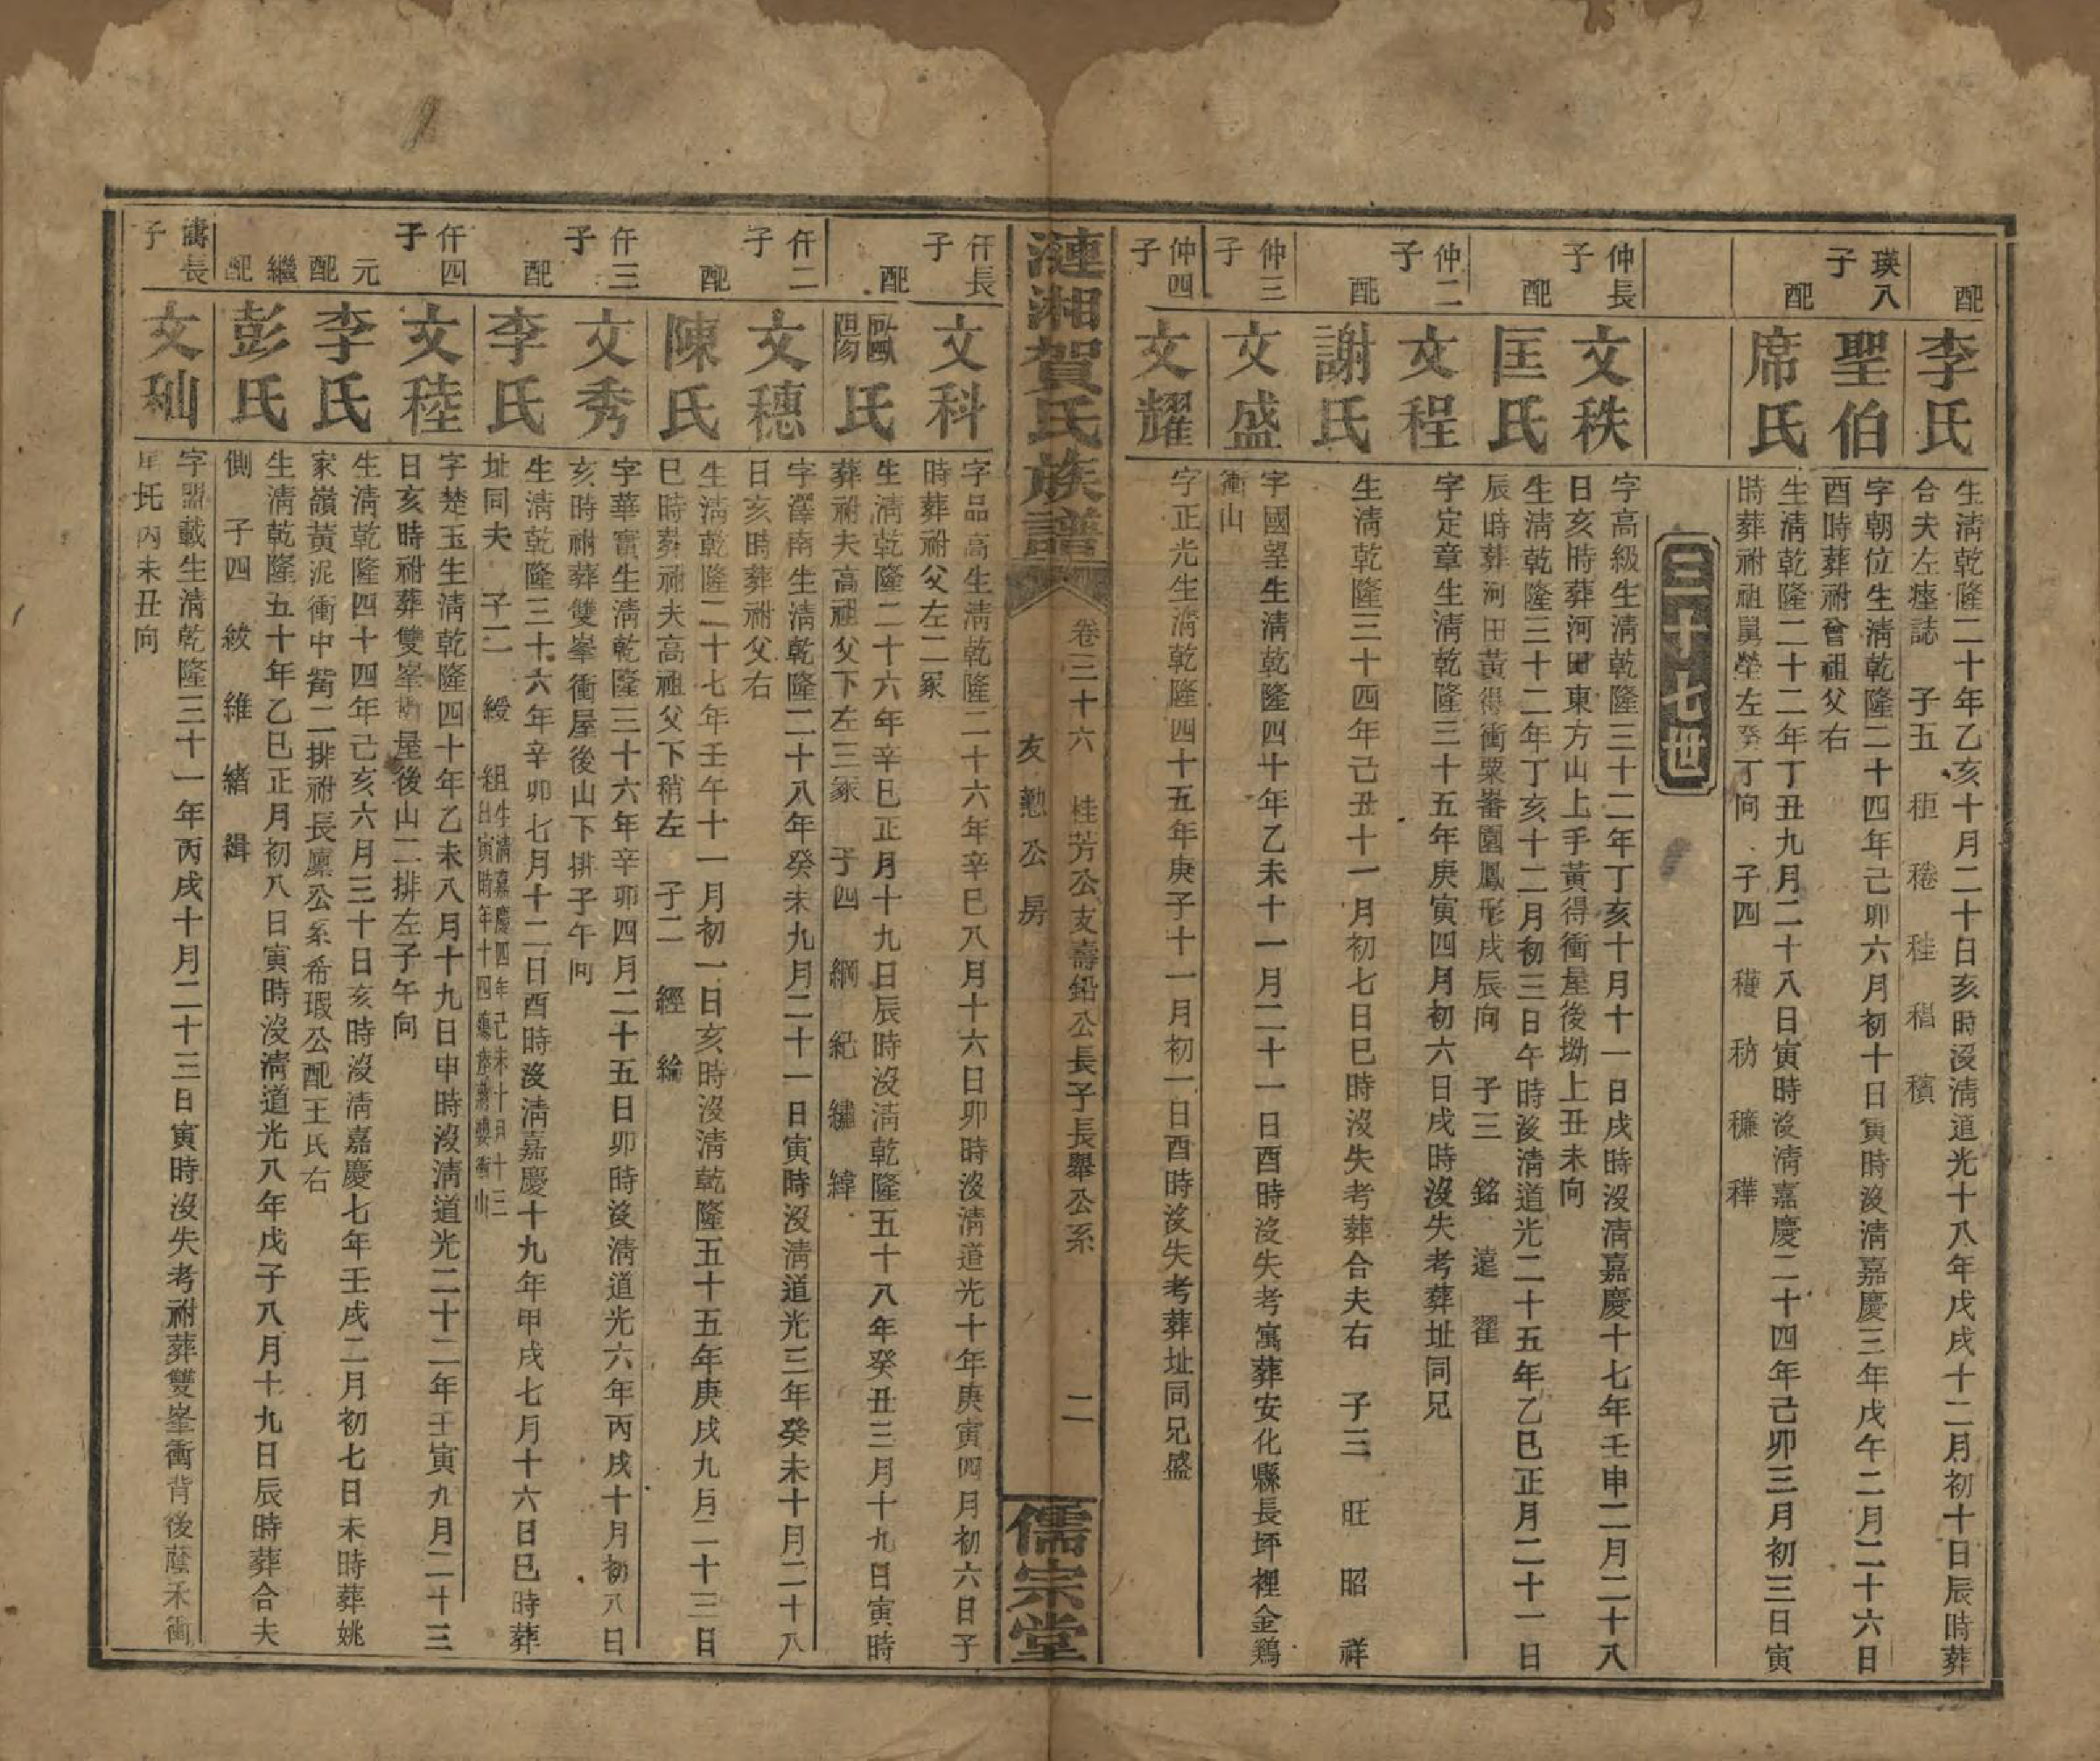 配
李氏
生淸乾隆二十年乙亥十月二十日亥時沒淸道光十八年戊戌十二月初十日辰時葬
合夫左瘞誌 子五 秬 稑 秸 稆 穦
瑛八子
聖伯
字朝位生淸乾隆二十四年己卯六月初十日寅時沒淸嘉慶三年戊午二月二十六日
酉時葬祔曾祖父右
配
席氏
生淸乾隆二十二年丁丑九月二十八日寅時沒淸嘉慶二十四年己卯三月初三日寅
時葬祔祖舅塋左癸丁向 子四 穫 穃 穮 穉
三十七世
仲長子
文秩
字高級生淸乾隆三十二年丁亥十月十一日戌時沒淸嘉慶十七年壬申二月二十八
日亥時葬河田東方山上手黃得衝屋後坳上丑未向
配
匡氏
生淸乾隆三十二年丁亥十二月初三日午時沒淸道光二十五年乙巳正月二十一日
辰時葬河田黃得衝粟畬園鳳形戌辰向 子三 銘 遠 翟
仲二子
文程
字定章生淸乾隆三十五年庚寅四月初六日戌時沒失考葬址同兄
配
謝氏
生淸乾隆三十四年己丑十一月初七日巳時沒失考葬合夫右 子三 旺 昭 祥
仲三子
文盛
字國望生淸乾隆四十年乙未十一月二十一日酉時沒失考寓葬安化縣長坪裡金鷄
衝山
仲四子
文耀
字正光生淸乾隆四十五年庚子十一月初一日酉時沒失考葬址同兄盛
漣湘賀氏族譜
卷三十六 桂芳公支壽鉛公長子長舉公系
友懃公房
二
儒宗堂
仟長子
文科
字品高生淸乾隆二十六年辛巳八月十六日卯時沒淸道光十年庚寅四月初六日子
時葬祔父左二冢
配
歐陽氏
生淸乾隆二十六年辛巳正月十九日辰時沒淸乾隆五十八年癸丑三月十九日寅時
葬祔夫高祖父下左三冢 子四 綱 紀 繡 緯
仟二子
文穗
字澤南生淸乾隆二十八年癸未九月二十一日寅時沒淸道光三年癸未十月二十八
日亥時葬祔父右
配
陳氏
生淸乾隆二十七年壬午十一月初一日亥時沒淸乾隆五十五年庚戌九月二十三日
巳時葬祔夫高祖父下稍左 子二 經 綸
仟三子
文秀
字華實生淸乾隆三十六年辛卯四月二十五日卯時沒淸道光六年丙戌十月初八日
亥時祔葬雙峯衝屋後山下排子午向
配
李氏
生淸乾隆三十六年辛卯七月十二日酉時沒淸嘉慶十九年甲戌七月十六日巳時葬
址同夫 子二 綬 組 生淸嘉慶四年己未十月十三
日寅時年十四殤葬蔣婆衝山
仟四子
文稑
字楚玉生淸乾隆四十年乙未八月十九日申時沒淸道光二十二年壬寅九月二十三
日亥時祔葬雙峯衝屋後山二排左子午向
元配
李氏
生淸乾隆四十四年己亥六月三十日亥時沒淸嘉慶七年壬戌二月初七日未時葬姚
家嶺黃泥衝中觜二排祔長廩公系希瑕公配王氏右
繼配
彭氏
生淸乾隆五十年乙巳正月初八日寅時沒淸道光八年戊子八月十九日辰時葬合夫
側 子四 紱 維 緒 緝
禱長子
文秈
字盟載生淸乾隆三十一年丙戌十月二十三日寅時沒失考祔葬雙峯衝背後蔭禾衝
尾坵內未丑向